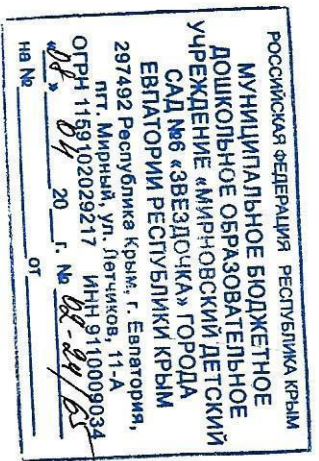 РОССИЙСКАЯ ФЕДЕРАЦИЯ РЕСПУБЛИКА КРЫМ
МУНИЦИПАЛЬНОЕ БЮДЖЕТНОЕ
ДОШКОЛЬНОЕ ОБРАЗОВАТЕЛЬНОЕ
УЧРЕЖДЕНИЕ «МИРНОВСКИЙ ДЕТСКИЙ
САД №6 «ЗВЕЗДОЧКА» ГОРОДА
ЕВПАТОРИИ РЕСПУБЛИКИ КРЫМ
297492 Республика Крым, г. Евпатория,
пгт. Мирный, ул. Летчиков, 11-А
ОГРН 1159102029217 ИНН 9110009034
«08» 04 20 г. № 02-24/65
на № от